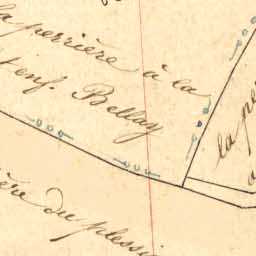 la perrière à la
enf. Bellay
la pe
du plessi